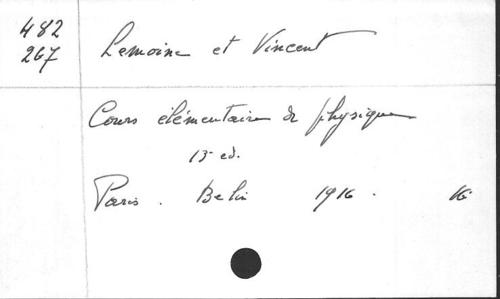 482
267
Lemoine et Vincent
Cours élémentaire de physique
13 ed.
Paris. Belin 1916.